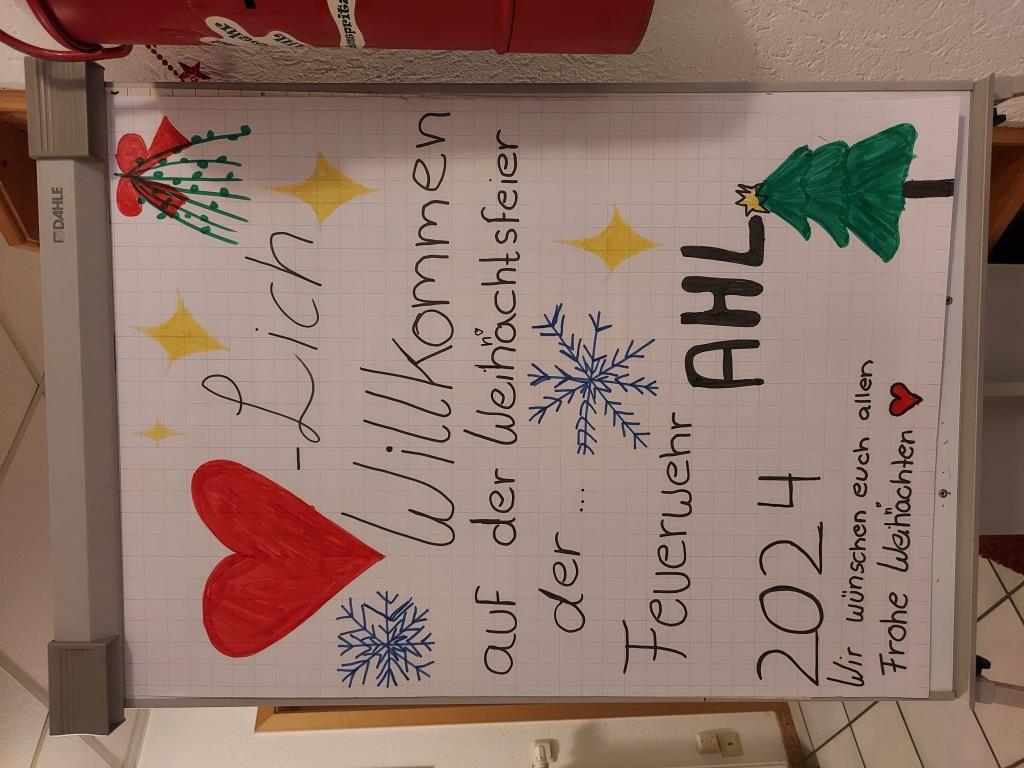 DAHLE
-Lich
Willkommen
auf der Weihnachtsfeier
der ...
Feuerwehr AHL
2024
Wir wünschen euch allen
Frohe Weihnachten